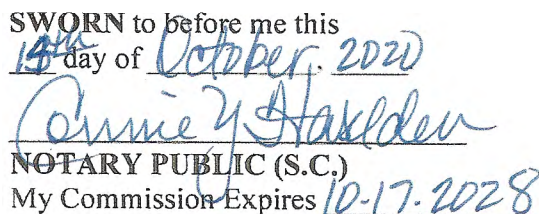 SWORN to before me this
day of October, 2020
Connie Y Haselden
NOTARY PUBLIC (S.C.)
My Commission Expires 10-17-2028